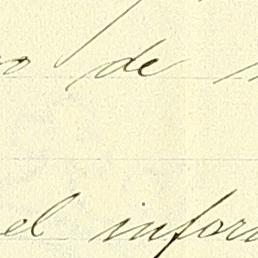 de
el infor